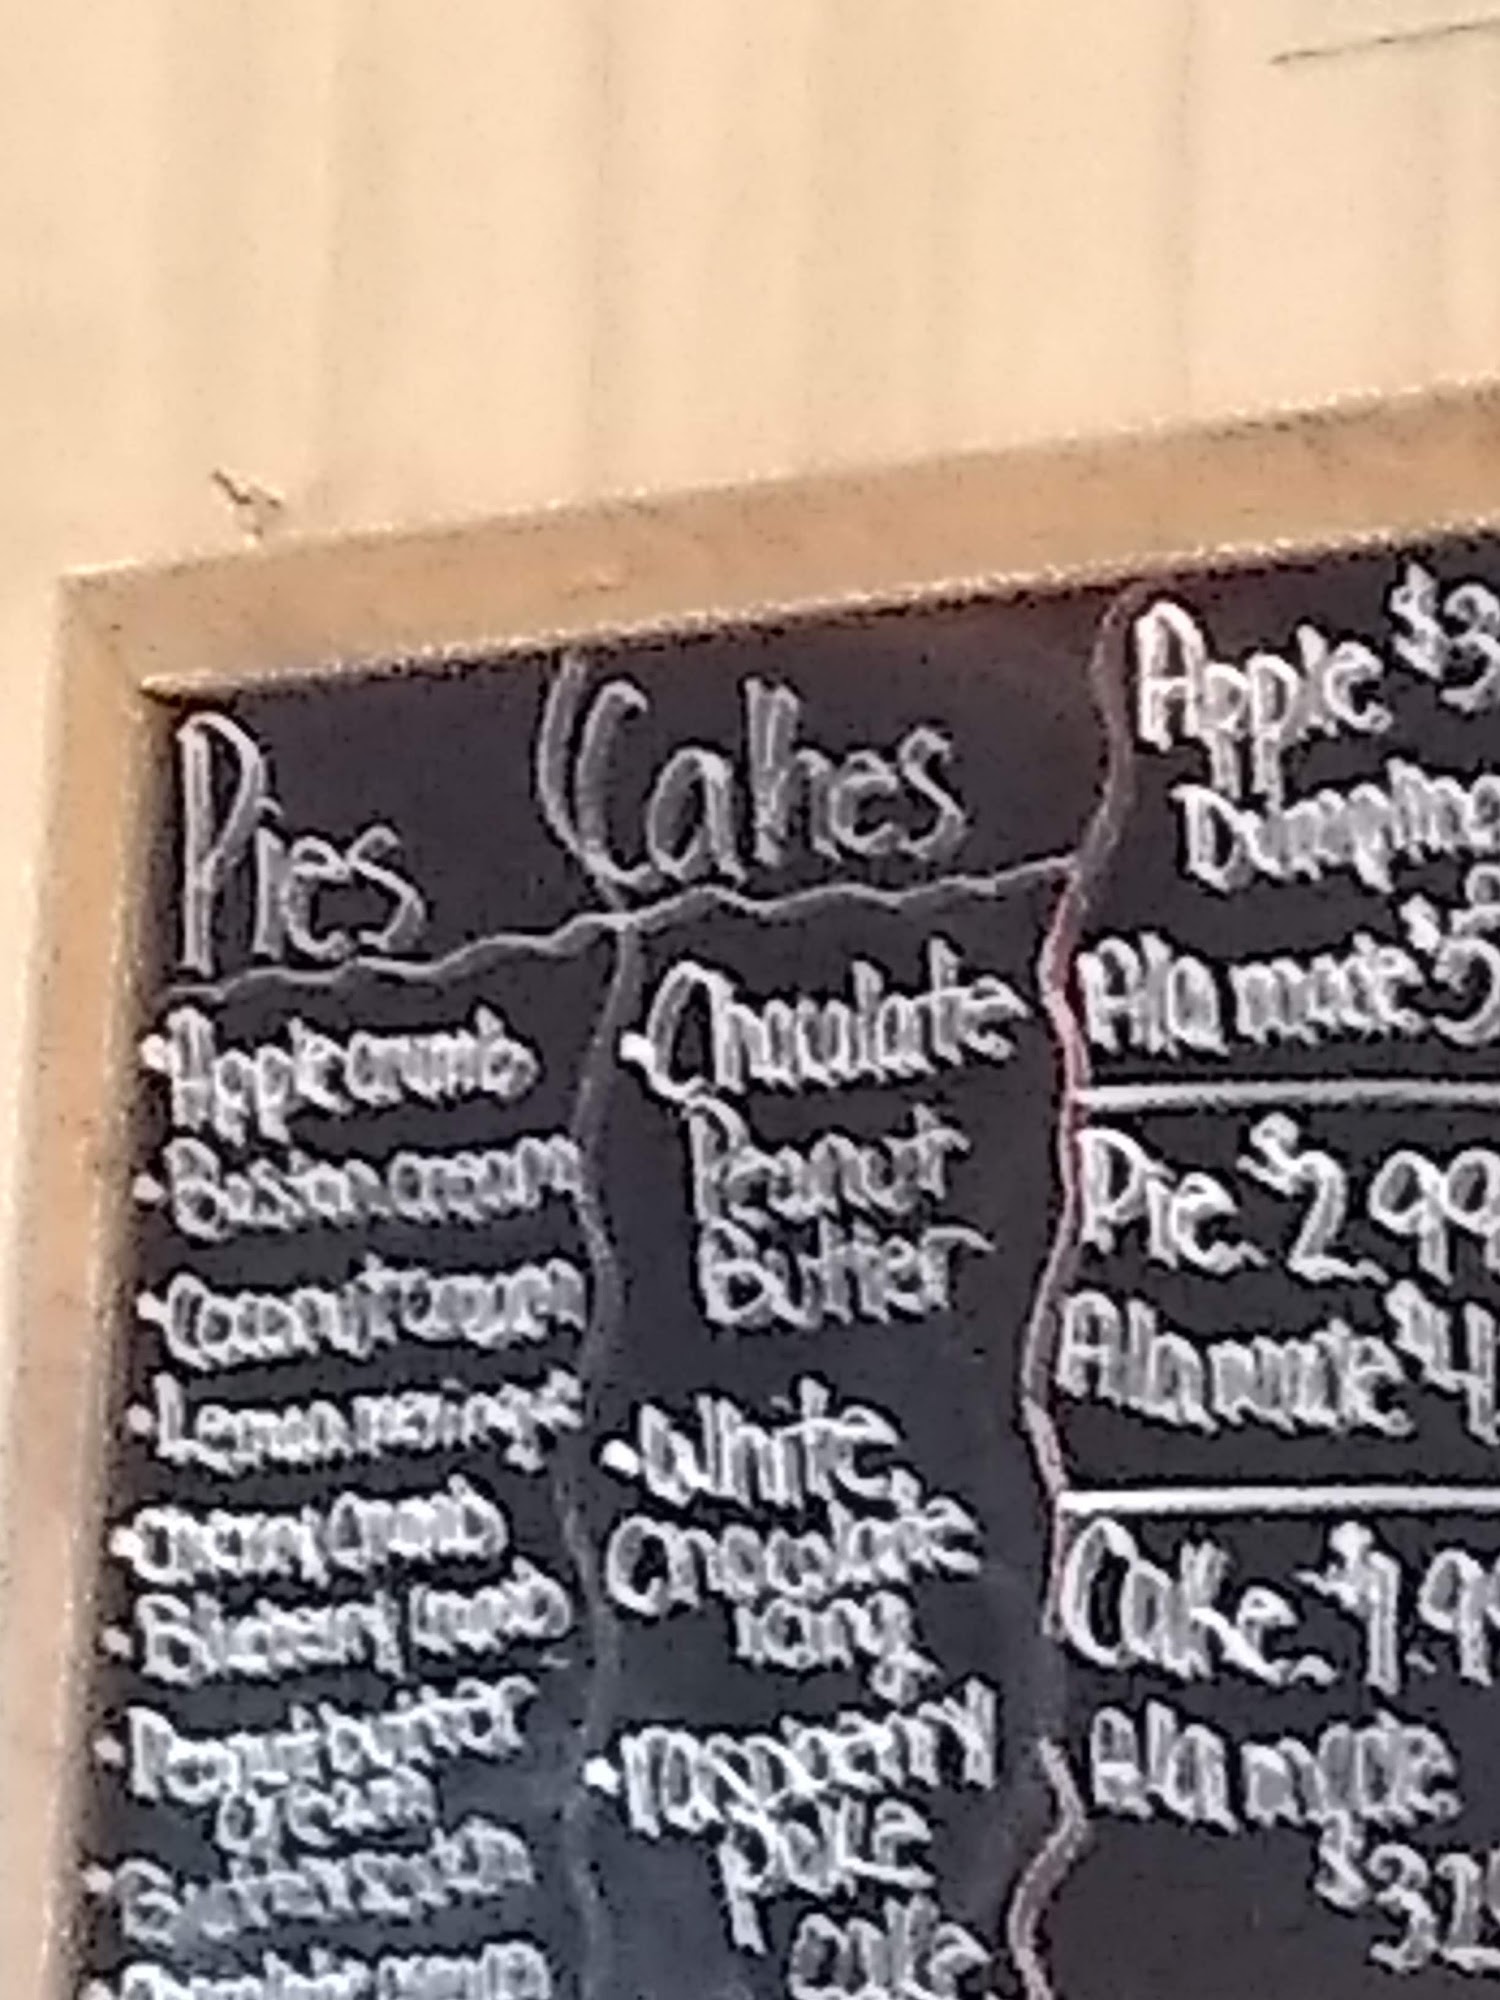 Pies
Apple crumb
Boston cream
Coconut cream
Lemon meringue
Cherry Crumb
Blueberry Crumb
Peanut butter
cream
Cakes
Chocolate
Peanut
Butter
White
Chocolate
icing
raspberry
poke
cake
Apple $3
Dumpling
Ala mode
Pie $2.99
Ala mode $4
Cake $1.99
Ala mode